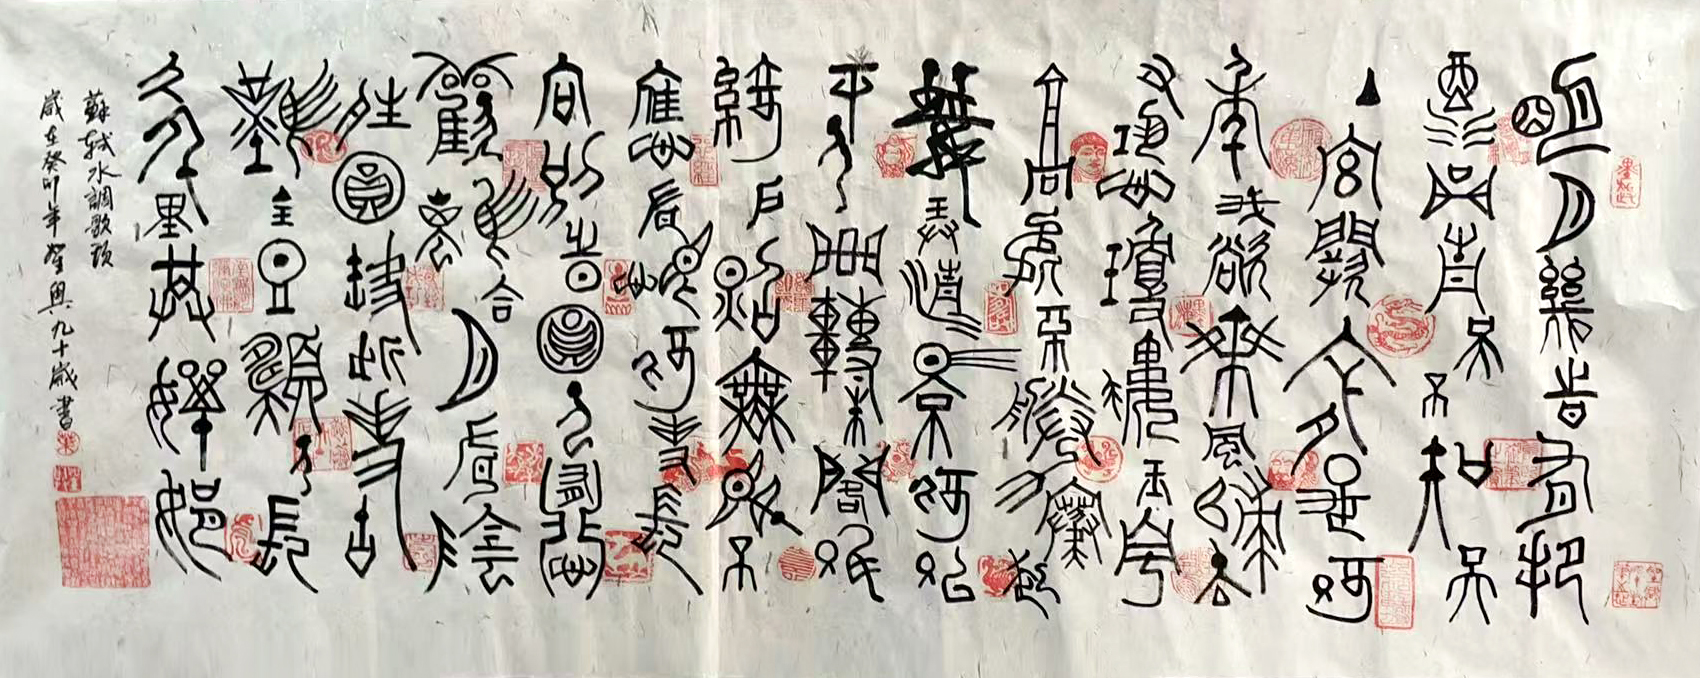 明月幾時有把
酒問青天不知天
上宮闕今夕是何
年我欲乘風歸去
又恐瓊樓玉宇
高處不勝寒起
舞弄清影何似
在人間轉朱閣低
綺戶照無眠不
應有恨何事長
向別時圓人有悲
歡離合月有陰
晴圓缺此事古
難全但願人長
久千里共嬋娟
蘇軾水調歌頭
歲在癸卯年九十歲書